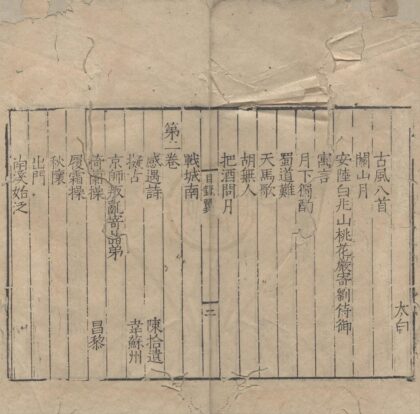 太白
古風八首
關山月
安陸白兆山桃花巖寄劉侍御
寓言
月下獨酌
蜀道難
天馬歌
胡無人
把酒問月
目錄 二
戰城南
第二卷
感遇詩 陳拾遺
擬古 韋蘇州
京師叛亂寄諸弟
猗蘭操 昌黎
履霜操
秋懷
出門
南溪始泛